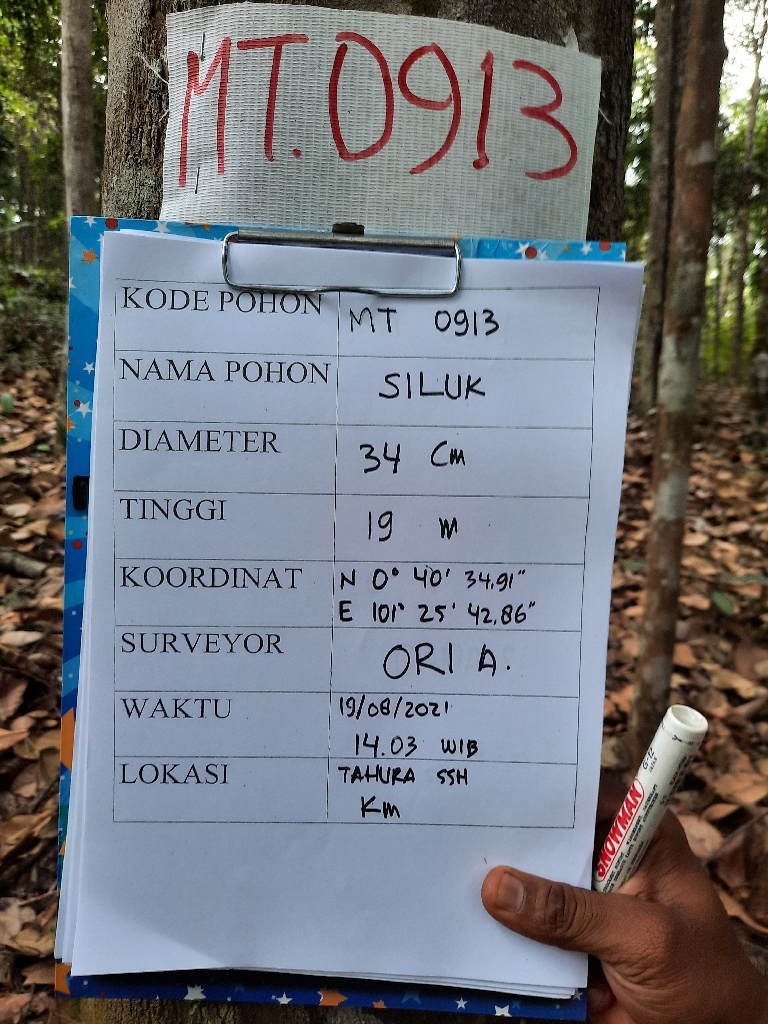 MT.0913
KODE POHON MT 0913
NAMA POHON SILUK
DIAMETER 34 Cm
TINGGI 19 m
KOORDINAT N 0° 40' 34,91"
E 101° 25' 42,86"
SURVEYOR ORI A.
WAKTU 19/08/2021
14.03 WIB
LOKASI TAHURA SSH
Km
SNOWMAN
G-12